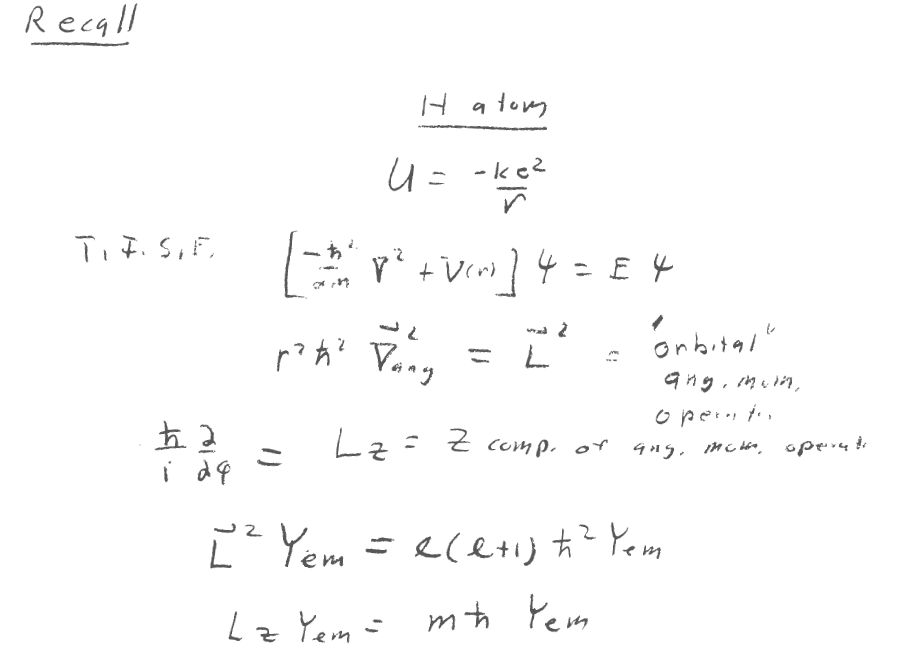 Recall
H atom
U = -ke²/r
T.I.S.E. [-ħ²/2m ∇² + V(r)] ψ = E ψ
r²ħ² ∇⃗²ang = L⃗² = "orbital"
ang. mom.
operator
ħ/i ∂/∂φ = Lz = Z comp. of ang. mom. operator
L⃗² Yℓm = ℓ(ℓ+1) ħ² Yℓm
Lz Yℓm = mħ Yℓm